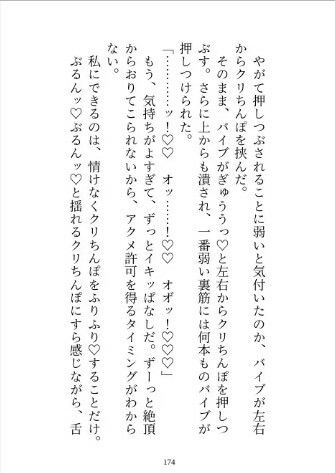 やがて押しつぶされることに弱いと気付いたのか、バイブが左右
からクリちんぽを挟んだ。
そのまま、バイブがぎゅううっ♡と左右からクリちんぽを押しつ
ぶす。さらに上からも潰され、一番弱い裏筋には何本ものバイブが
押しつけられた。
「…………ッ！♡♡　オッ……！♡♡　オオッ！♡♡♡」
もう、気持ちがよすぎて、ずっとイキッぱなしだ。ずーっと絶頂
からおりてこられないから、アクメ許可を得るタイミングがわから
ない。
私にできるのは、情けなくクリちんぽをふりふり♡することだけ。
ぶるんッ♡ぶるんッ♡と揺れるクリちんぽにすら感じながら、舌
174